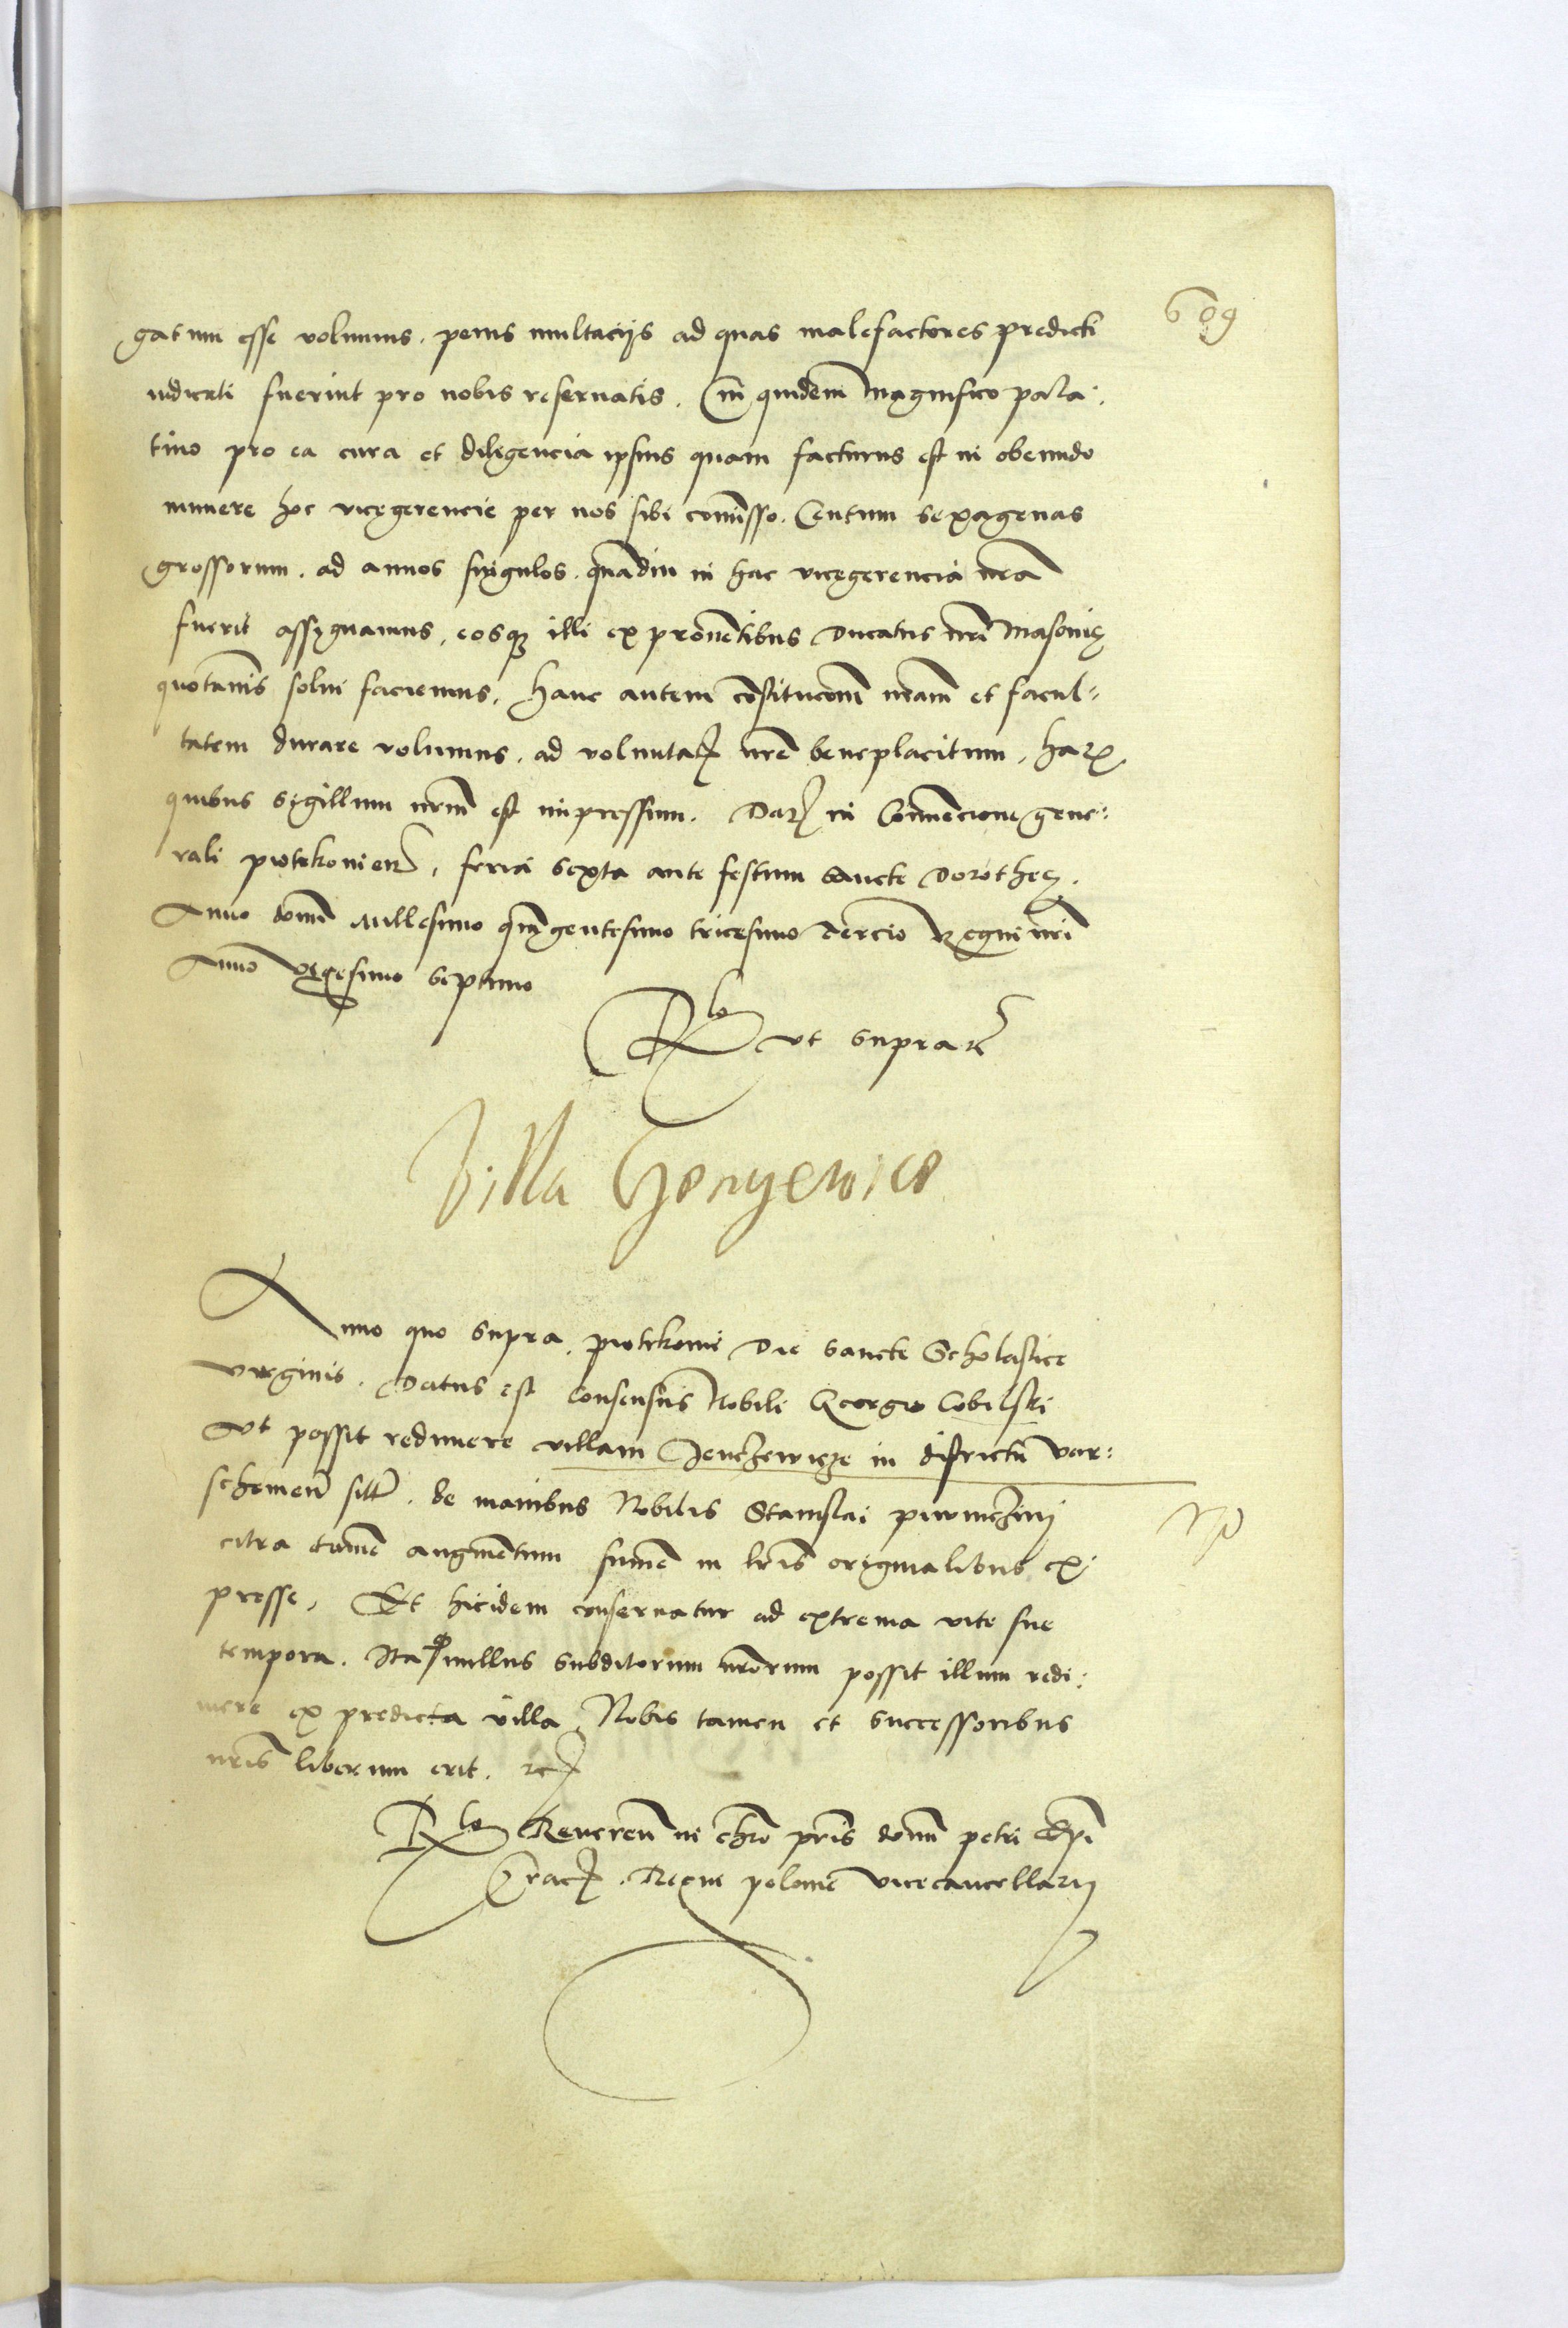 609
gatum esse volumus. penis mulctacijs ad quas malefactores predicti
iudicati fuerint pro nobis reservatis. Cui quidem Magnifico pala-
tino pro ea cura et diligencia ipsius quam facturus est in obeundo
munere hoc vicegerencie per nos sibi comisso. Centum sexagenas
grossorum. ad annos singulos. quadiu in hac vicegerencia nra
fuerit assygnamus, eosq illi ex proventibus Ducatus nri Masovię
quotannis solvi faciemus. Hanc autem constitucom nram et facul-
tatem durare volumus. ad voluntat nre beneplacitum. Har
quibus sygillum nrm est impressum. Dat in Convencione gene-
rali piotrkovien, feria sexta ante festum Sancte Dorotheę.
Anno domi Millesimo quingentesimo tricesimo tercio Regni nri
Anno vigesimo septimo
Rlo ut supra rc
Villa
Anno quo supra, piotrkovie Die Sancte Scholastice
virginis. Datus est Consensus Nobili Georgio Cobilski
Ut possit redimere villam Jenczewicze in districtu var-
schovien sitt. de manibus Nobilis Stanislai
citra tamen augmentum summe in lris originalibus ex-
presse. Et hic idem conservatur ad extrema vite sue
tempora. Ita q nullus subditorum nrorum possit illum redi-
mere ex predicta villa, Nobis tamen et successoribus
nris liberum erit. rc
Rlo Reveren in chro pris domi petri Epi
Crac. Regni polonie vicecancellarij